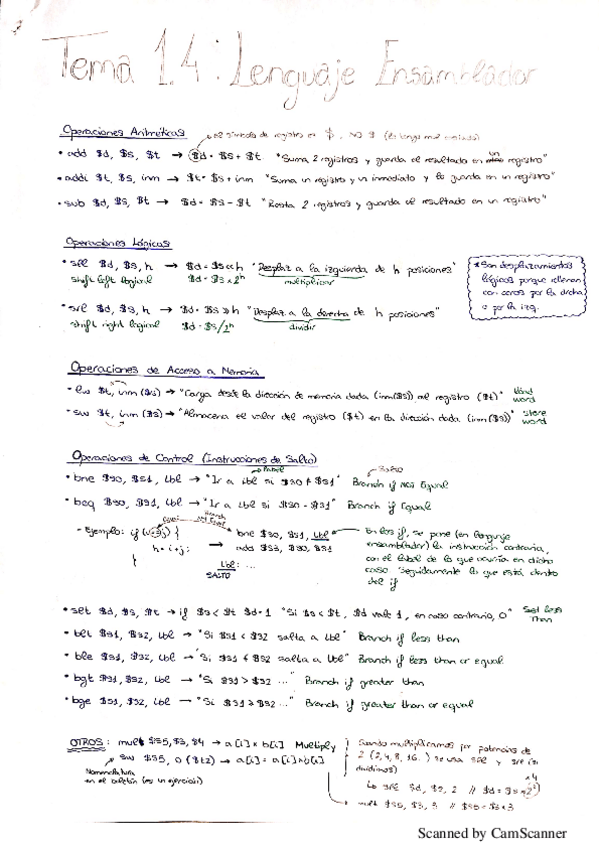 Tema 1.4: Lenguaje Ensamblador
Operaciones Aritméticas
el símbolo de registro es $, no
• add $d, $s, $t → $d = $s + $t "Suma 2 registros y guarda el resultado en un registro"
• addi $t, $s, inm → $t = $s + inm "Suma un registro y un inmediato y lo guarda en un registro"
• sub $d, $s, $t → $d = $s - $t "Resta 2 registros y guarda el resultado en un registro"
Operaciones Lógicas
• sll $d, $s, h → $d = $s << h "Desplaz a la izquierda de h posiciones"
shift left logical $d = $s × 2^h multiplicar
• srl $d, $s, h → $d = $s >> h "Desplaz a la derecha de h posiciones"
shift right logical $d = $s/2^h dividir
* Son desplazamientos
lógicos porque rellenan
con ceros por la drcha
o por la izq.
Operaciones de Acceso a Memoria
• lw $t, inm($s) → "Carga desde la dirección de memoria dada (inm($s)) al registro ($t)" load word
• sw $t, inm($s) → "Almacena el valor del registro ($t) en la dirección dada (inm($s))" store word
Operaciones de Control (Instrucciones de Salto)
Label
Salto
• bne $s0, $s1, Lbl → "Ir a Lbl si $s0 ≠ $s1" Branch if Not Equal
• beq $s0, $s1, Lbl → "Ir a Lbl si $s0 = $s1" Branch if Equal
- Ejemplo: if (i==j) {
h = i + j;
}
Equal
Branch not Equal
→ bne $s0, $s1, Lbl
add $s3, $s0, $s1
Lbl: ...
SALTO
En los if, se pone (en lenguaje
ensamblador) la instrucción contraria,
con el label de lo que ocurriría en dicho
caso. Seguidamente lo que está dentro
del if
• slt $d, $s, $t → if $s < $t $d = 1 "Si $s < $t, $d vale 1, en caso contrario, 0" Set less Than
• blt $s1, $s2, Lbl → "Si $s1 < $s2 salta a Lbl" Branch if less than
• ble $s1, $s2, Lbl → "Si $s1 ≤ $s2 salta a Lbl" Branch if less than or equal
• bgt $s1, $s2, Lbl → "Si $s1 > $s2 ..." Branch if greater than
• bge $s1, $s2, Lbl → "Si $s1 ≥ $s2 ..." Branch if greater than or equal
OTROS: mult $s5, $3, $4 → a[i] × b[i] Multiply
sw $s5, 0($t2) → a[i] = a[i] × b[i]
Nomenclatura
en el boletín (es un ejercicio)
Cuando multiplicamos por potencias de
2 (2, 4, 8, 16...) se usa sll y srl (si
dividimos)
sll $d, $s, 2 // $d = $s × 2²
×4
mult $s5, $s, 3 // $s5 = $s × 3
Scanned by CamScanner